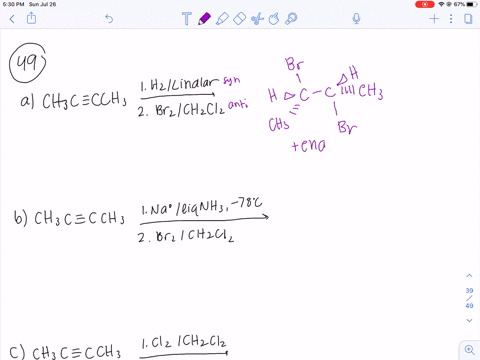 5:30 PM Sun Jul 26
67%
49
a) CH3C≡CCH3 1. H2/Lindlar syn
2. Br2/CH2Cl2 anti
Br H
H C – C CH3
CH3 Br
+ena
b) CH3C≡CCH3 1. Na°/liqNH3, -78°C
2. Br2/CH2Cl2
39
/
49
c) CH3C≡CCH3 1. Cl2/CH2Cl2